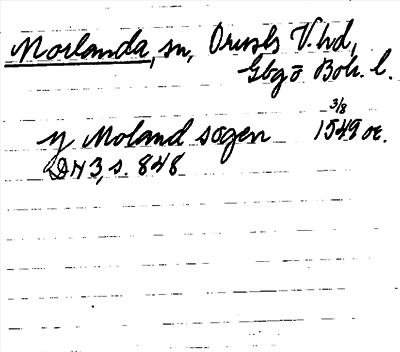 Morlanda, sn, Orusts V. hd,
Gbg o Boh. l.
3/8
y Moland sogen 1549 or.
DN 3, s. 848